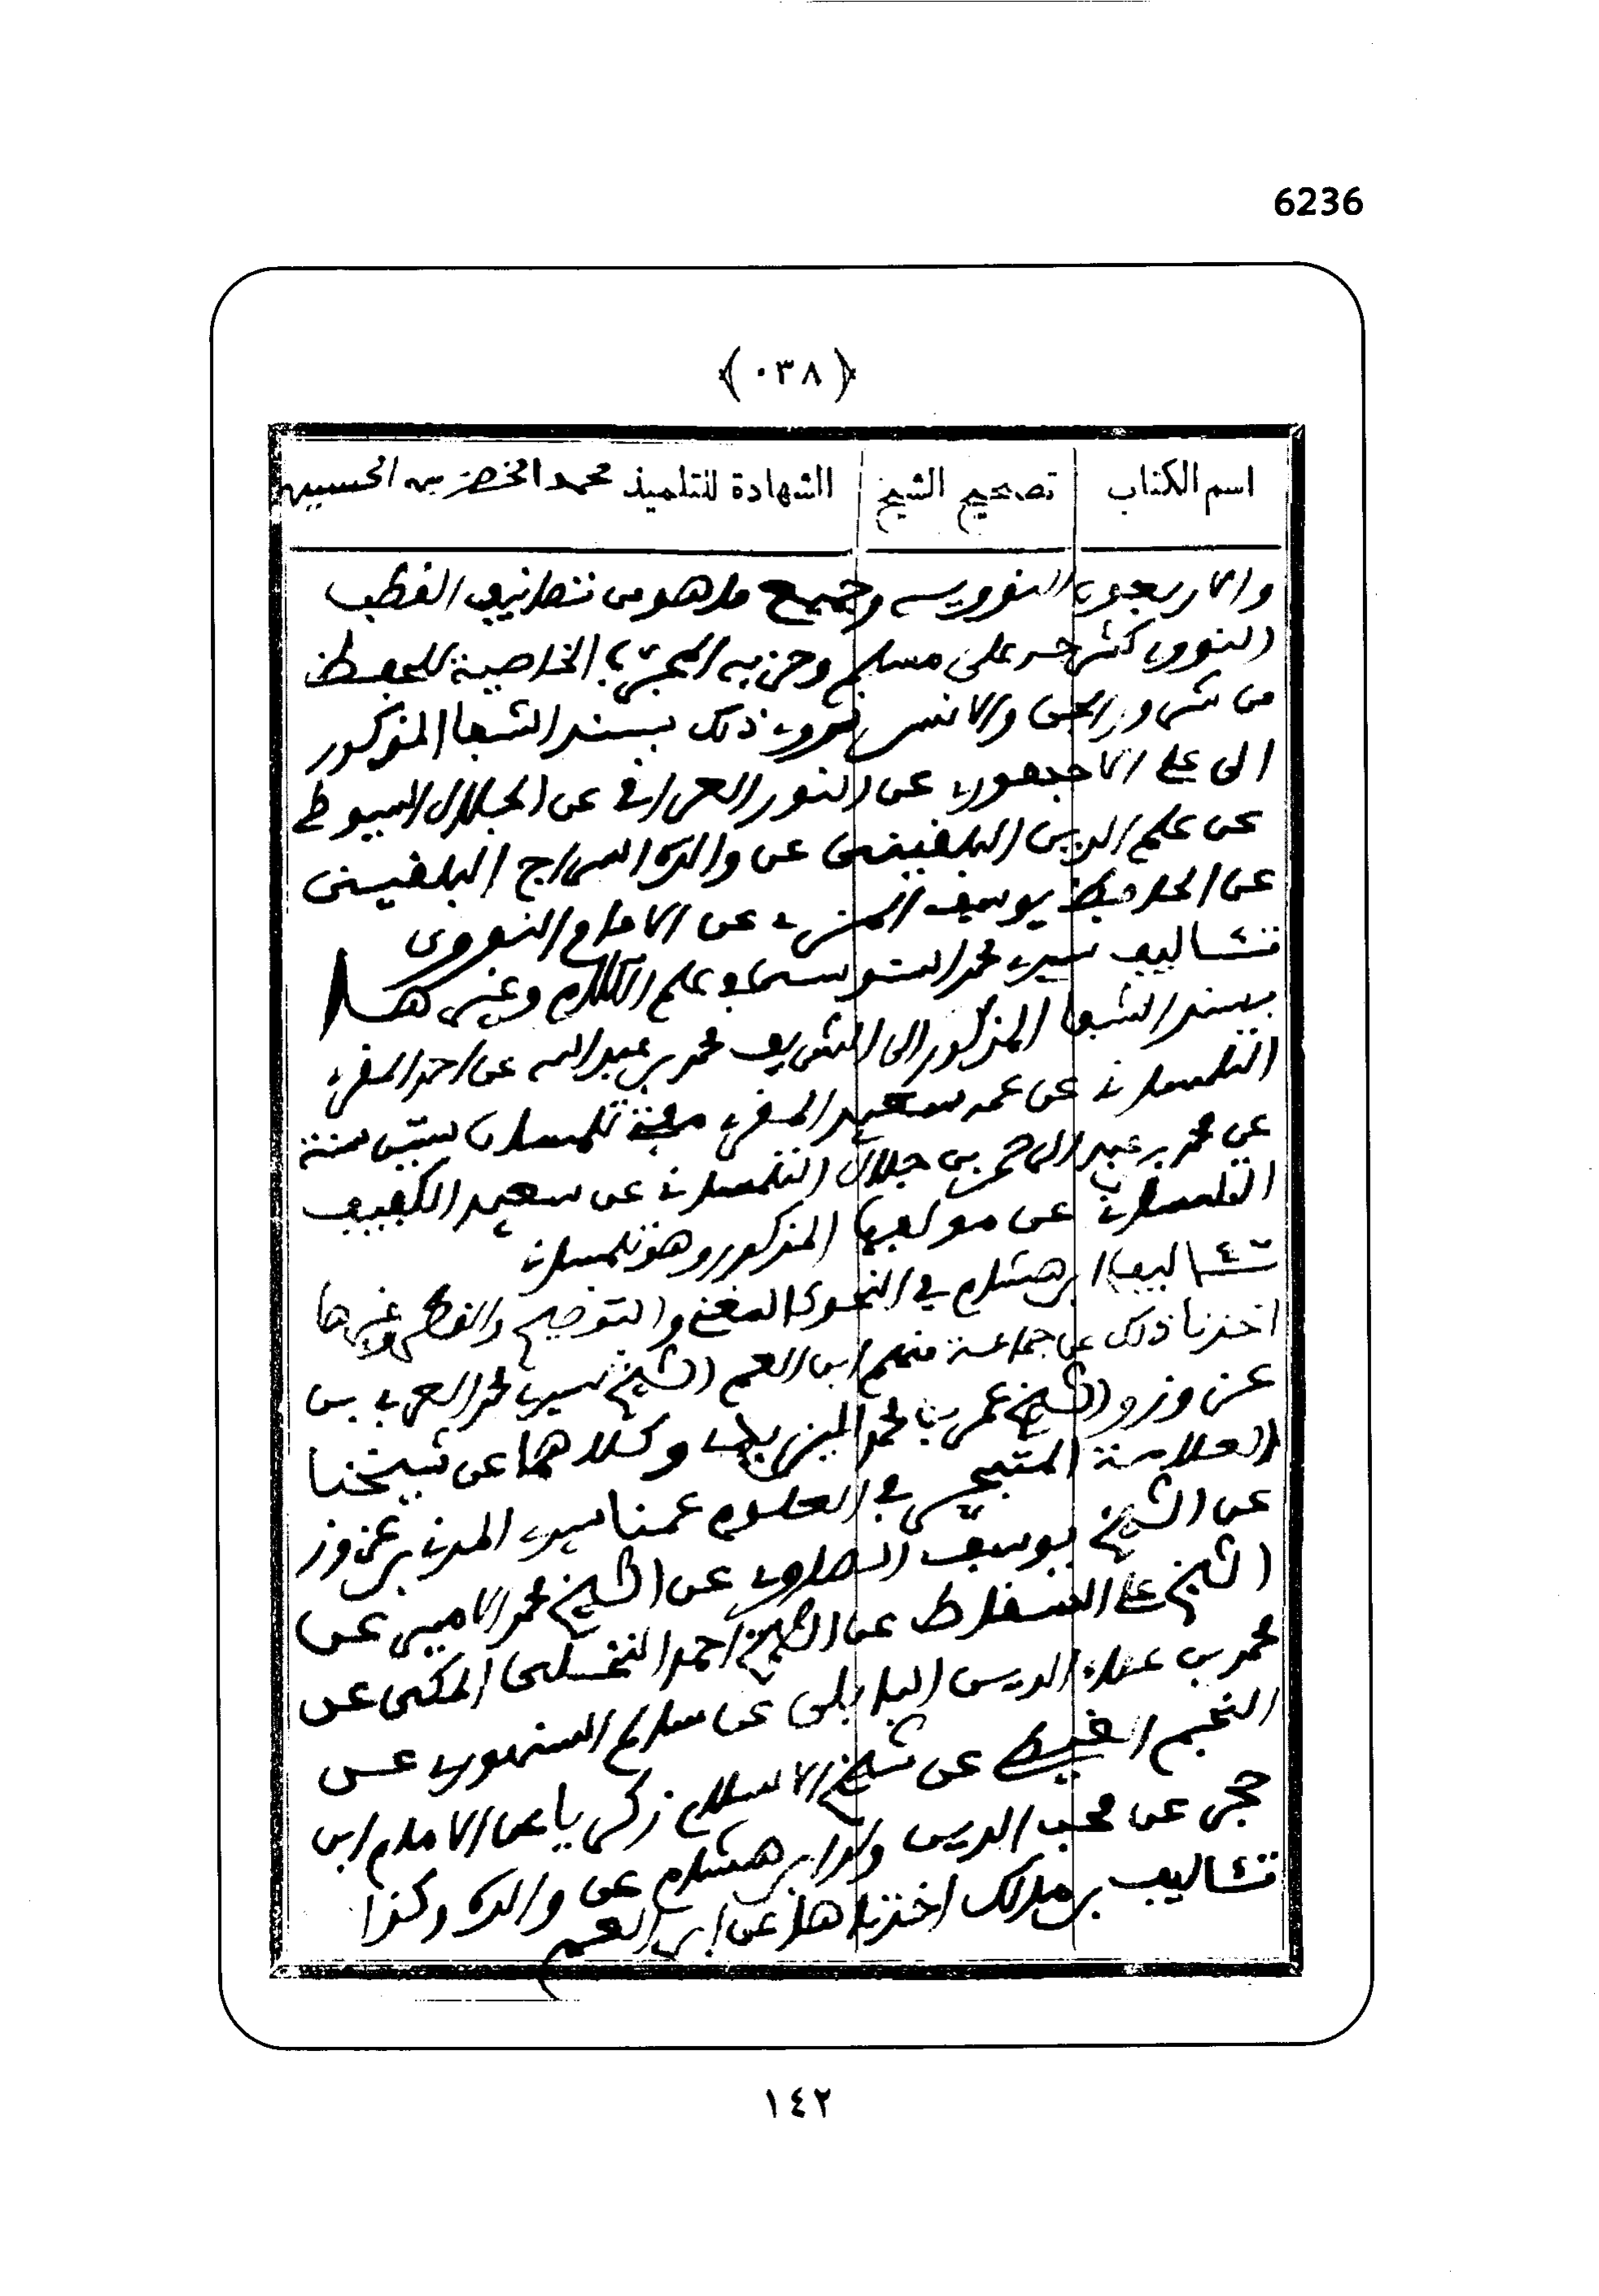 6236
﴿٠٣٨﴾
اسم الكتاب تصحيح الشيخ الشهادة للتلميذ محمد الخضر بن الحسين
والاربعون النووية وجميع ما هو من تصانيف القطب
النووي كشرحه على مسلم وحزبه المجرب الخاصية للحفظ
من شرور الجن والانس نروي ذلك بسند الشفا المذكور
الى علي الاجهوري عن النور القرافي عن الجلال السيوطي
عن علم الدين البلقيني عن والده السراج البلقيني
عن الحافظ يوسف المزي عن الامام النووي
تئاليف سيدي محمد السنوسي في علم الكلام وغيرها
بسند الشفا المذكور الى الشريف محمد بن عبد الله عن احمد المقري
التلمساني عن عمه سعيد المقري مفتي تلمسان ستين سنة
عن محمد بن عبد الرحمن بن جلال التلمساني عن سعيد الكفيف
التلمساني عن مولفها المذكور وهو تلمساني
تئاليف ابن هشام في النحو كالمغني والتوضيح والقطر وغيرها
اخذنا ذلك عن جماعة منهم ابن العم الشيخ سيدي محمد العربي بن
عزوز والشيخ عمر بن محمد وكلاهما عن شيخنا
العلامة المتبحر في العلوم عمنا سيدي المدني بن عزوز
عن الشيخ يوسف الصاوي عن الشيخ محمد الامير عن
الشيخ علي السقاط عن الشيخ احمد النخلي المكي عن
محمد بن علاء الدين البابلي عن سالم السنهوري عن
النجم الغيطي عن شيخ الاسلام زكريا عن الامام ابن
حجر عن محب الدين ولد ابن هشام عن والده وكذا
تئاليف بن مالك اخذناها عن ابن العم
١٤٢